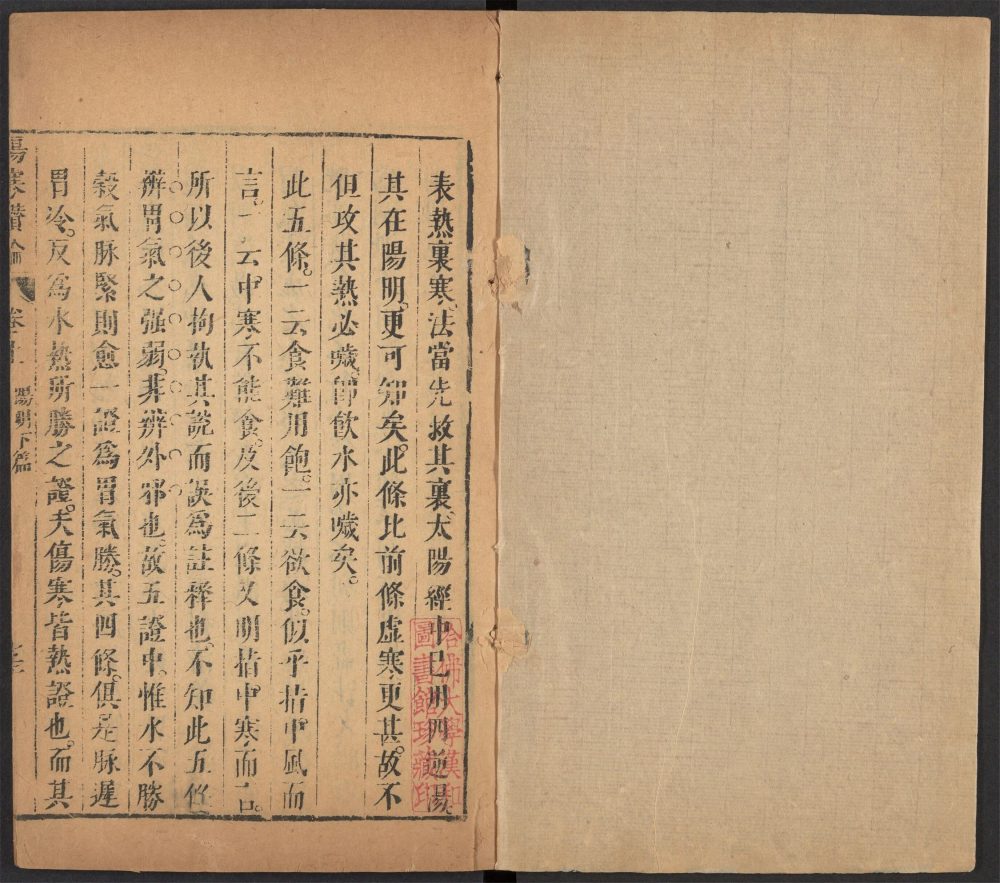 表熱裏寒。法當先救其裏。太陽經中已用四逆湯。
其在陽明。更可知矣。此條比前條虛寒更甚。故不
但攻其熱必噦。卽飲水亦噦矣。
此五條。一云食難用飽。一云欲食。似乎指中風而
言。一云中寒不能食。及後二條又明指中寒而言。
所以後人拘執其說而誤爲註釋也。不知此五條
辨胃氣之强弱。非辨外邪也。故五證中。惟水不勝
穀氣脉緊則愈一證爲胃氣勝。其四條。俱是脉遲
胃冷。反爲水熱所勝之證。夫傷寒皆熱證也。而其
傷寒纘論
卷上
陽明下篇
哈佛大學漢和
圖書館珍藏印